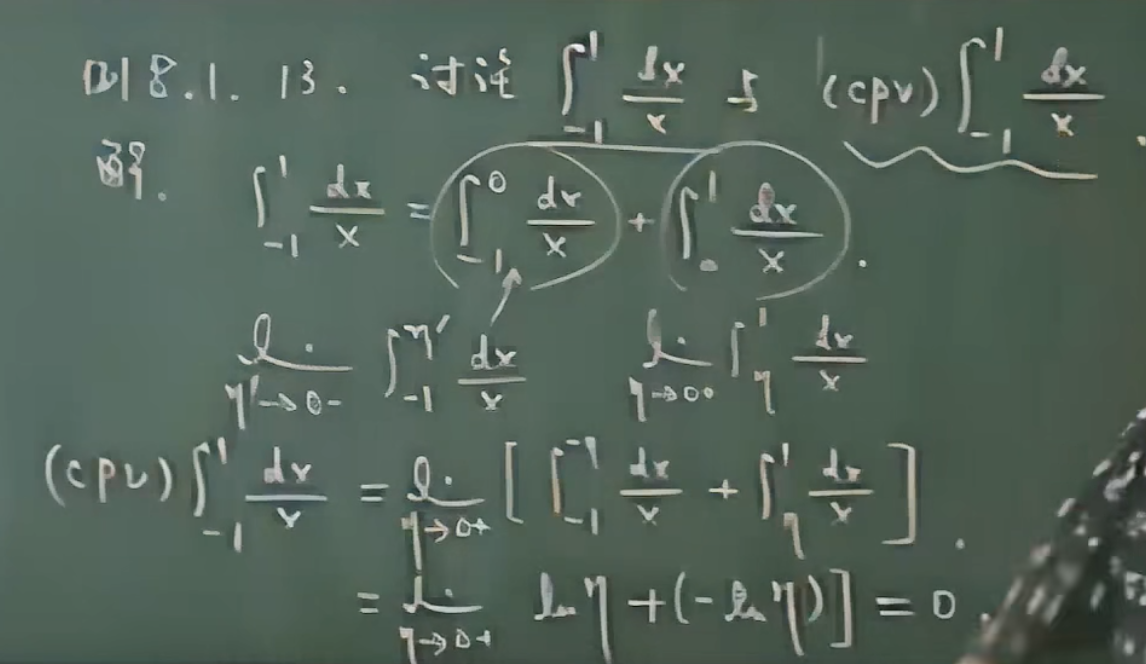 例 8.1.13. 讨论 ∫_{-1}^{1} dx/x 与 (cpv)∫_{-1}^{1} dx/x.
解. ∫_{-1}^{1} dx/x = ∫_{-1}^{0} dx/x + ∫_{0}^{1} dx/x.
lim_{η'→0-} ∫_{-1}^{η'} dx/x lim_{η→0+} ∫_{η}^{1} dx/x
(cpv)∫_{-1}^{1} dx/x = lim_{η→0+} [∫_{-1}^{-η} dx/x + ∫_{η}^{1} dx/x].
= lim_{η→0+} ln η + (-ln η)] = 0.